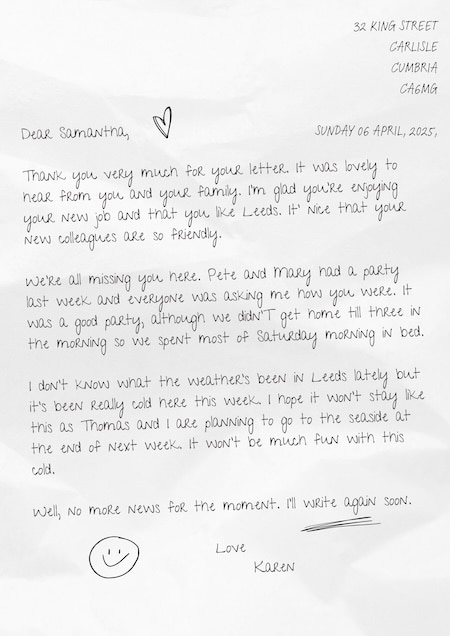 32 KING STREET
CARLISLE
CUMBRIA
CA6MG
Dear Samantha,
SUNDAY 06 APRIL, 2025,
Thank you very much for your letter. It was lovely to
hear from you and your family. I'm glad you're enjoying
your new job and that you like Leeds. It' nice that your
new colleagues are so friendly.
We're all missing you here. Pete and Mary had a party
last week and everyone was asking me how you were. It
was a good party, although we didn'T get home till three in
the morning so we spent most of Saturday morning in bed.
I don't know what the weather's been in Leeds lately but
it's been really cold here this week. I hope it won't stay like
this as Thomas and I are planning to go to the seaside at
the end of next week. It won't be much fun with this
cold.
Well, no more news for the moment. I'll write again soon.
Love
Karen